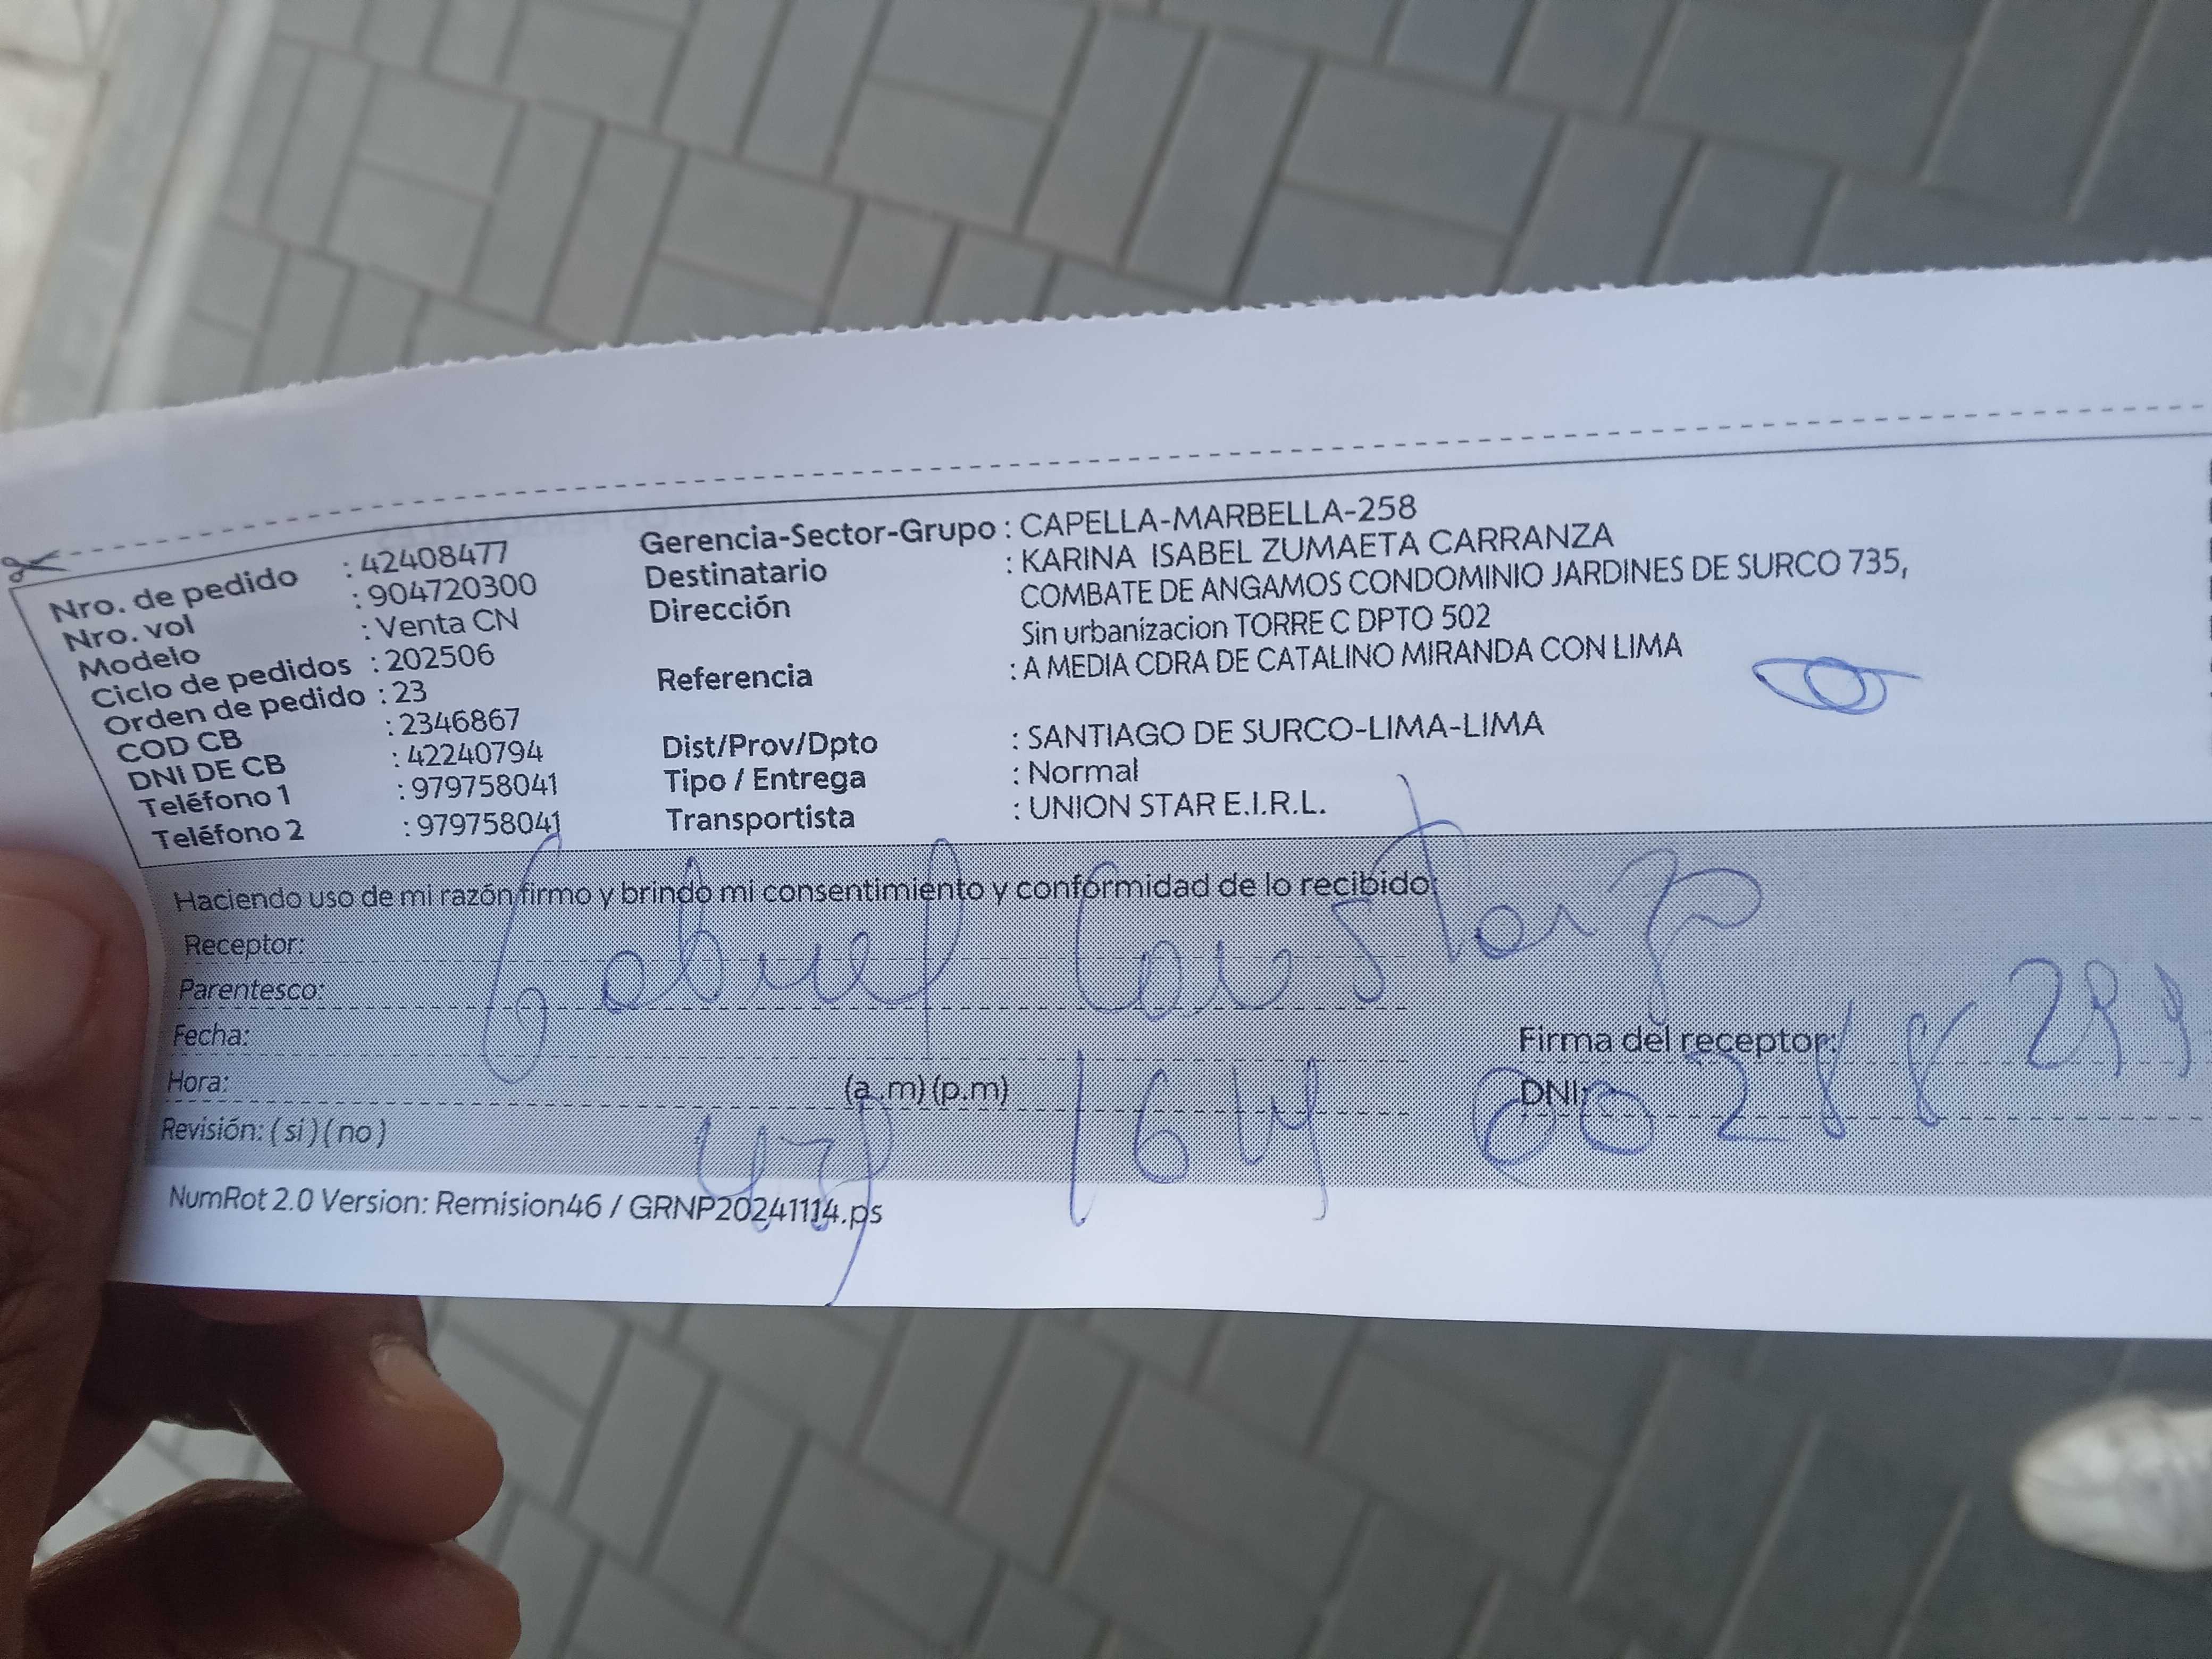 Nro. de pedido : 42408477
Nro. vol : 904720300
Modelo : Venta CN
Ciclo de pedidos : 202506
Orden de pedido : 23
COD CB : 2346867
DNI DE CB : 42240794
Teléfono 1 : 979758041
Teléfono 2 : 979758041
Gerencia-Sector-Grupo : CAPELLA-MARBELLA-258
Destinatario : KARINA ISABEL ZUMAETA CARRANZA
Dirección COMBATE DE ANGAMOS CONDOMINIO JARDINES DE SURCO 735,
Sin urbanizacion TORRE C DPTO 502
Referencia : A MEDIA CDRA DE CATALINO MIRANDA CON LIMA
Dist/Prov/Dpto : SANTIAGO DE SURCO-LIMA-LIMA
Tipo / Entrega : Normal
Transportista : UNION STAR E.I.R.L.
Haciendo uso de mi razón firmo y brindo mi consentimiento y conformidad de lo recibido.
Receptor:
Parentesco:
Fecha:
Hora: (a.m) (p.m)
Revisión: ( si ) ( no )
Firma del receptor:
DNI:
NumRot 2.0 Version: Remision46 / GRNP20241114.ps